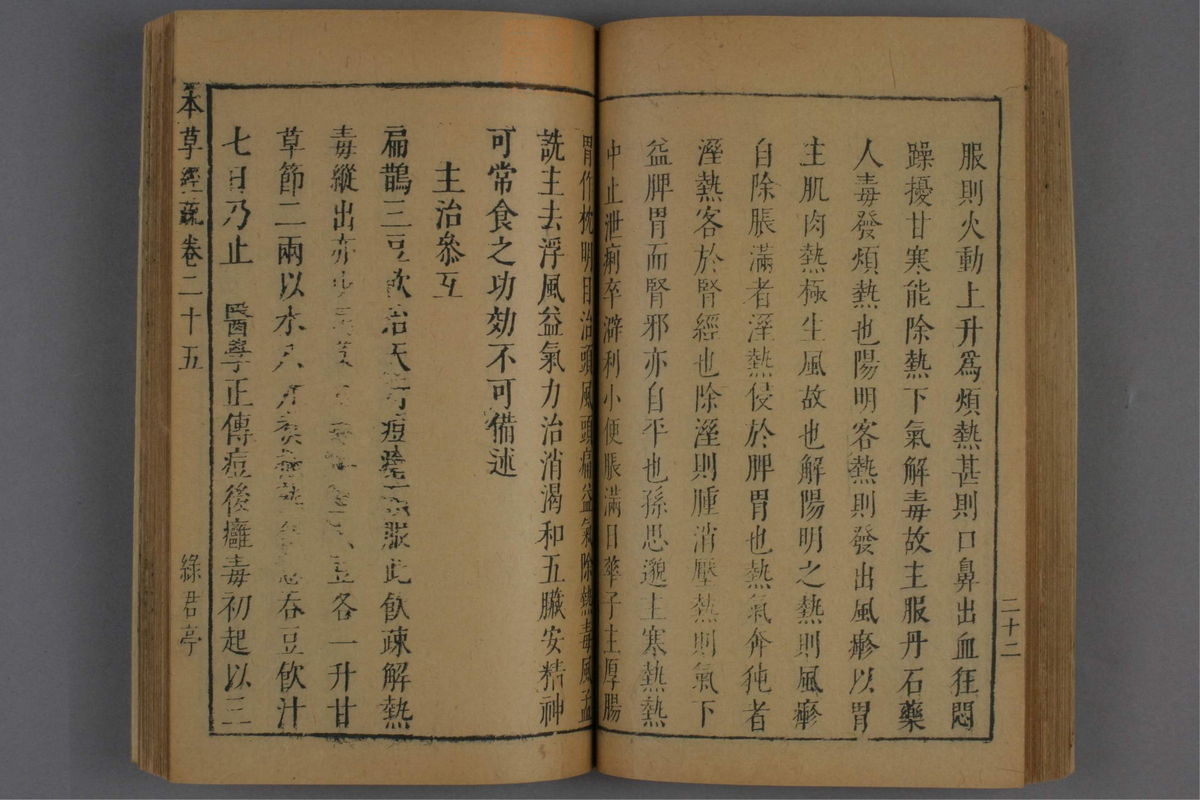 服則火動上升爲煩熱甚則口鼻出血狂悶
躁擾甘寒能除熱下氣解毒故主服丹石藥
人毒發煩熱也陽明客熱則發出風㾦以胃
主肌肉熱極生風故也解陽明之熱則風㾦
自除脹滿者溼熱侵於脾胃也熱氣奔㹠者
溼熱客於腎經也除溼則腫消壓熱則氣下
益脾胃而腎邪亦自平也孫思邈主寒熱熱
中止泄痢卒澼利小便脹滿日華子主厚腸
胃作枕明目治頭風頭痛益氣除熱毒風孟
詵主去浮風益氣力治消渴和五臟安精神
可常食之功効不可備述
主治叅互
扁鵲三豆飲治天行痘瘡預服此飲疎解熱
毒縱出亦少 豆各一升甘
草節二兩以水八升煮 吞豆飲汁
七日乃止 醫學正傳痘後癰毒初起以三
二十二
本草經疏卷二十五
綠君亭